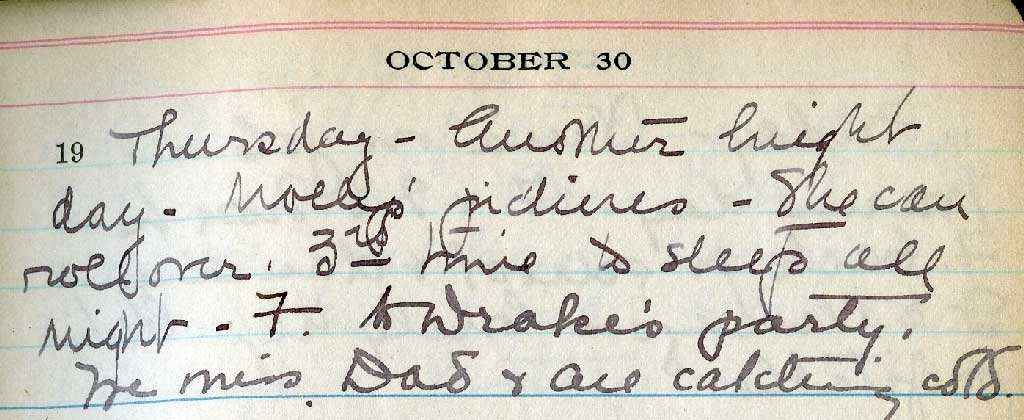 OCTOBER 30
19 Thursday - Another bright
day. Molly's pictures - She can
roll over. 3rd time to sleep all
night - F. to Drake's party.
We miss Dad & are catching colds.